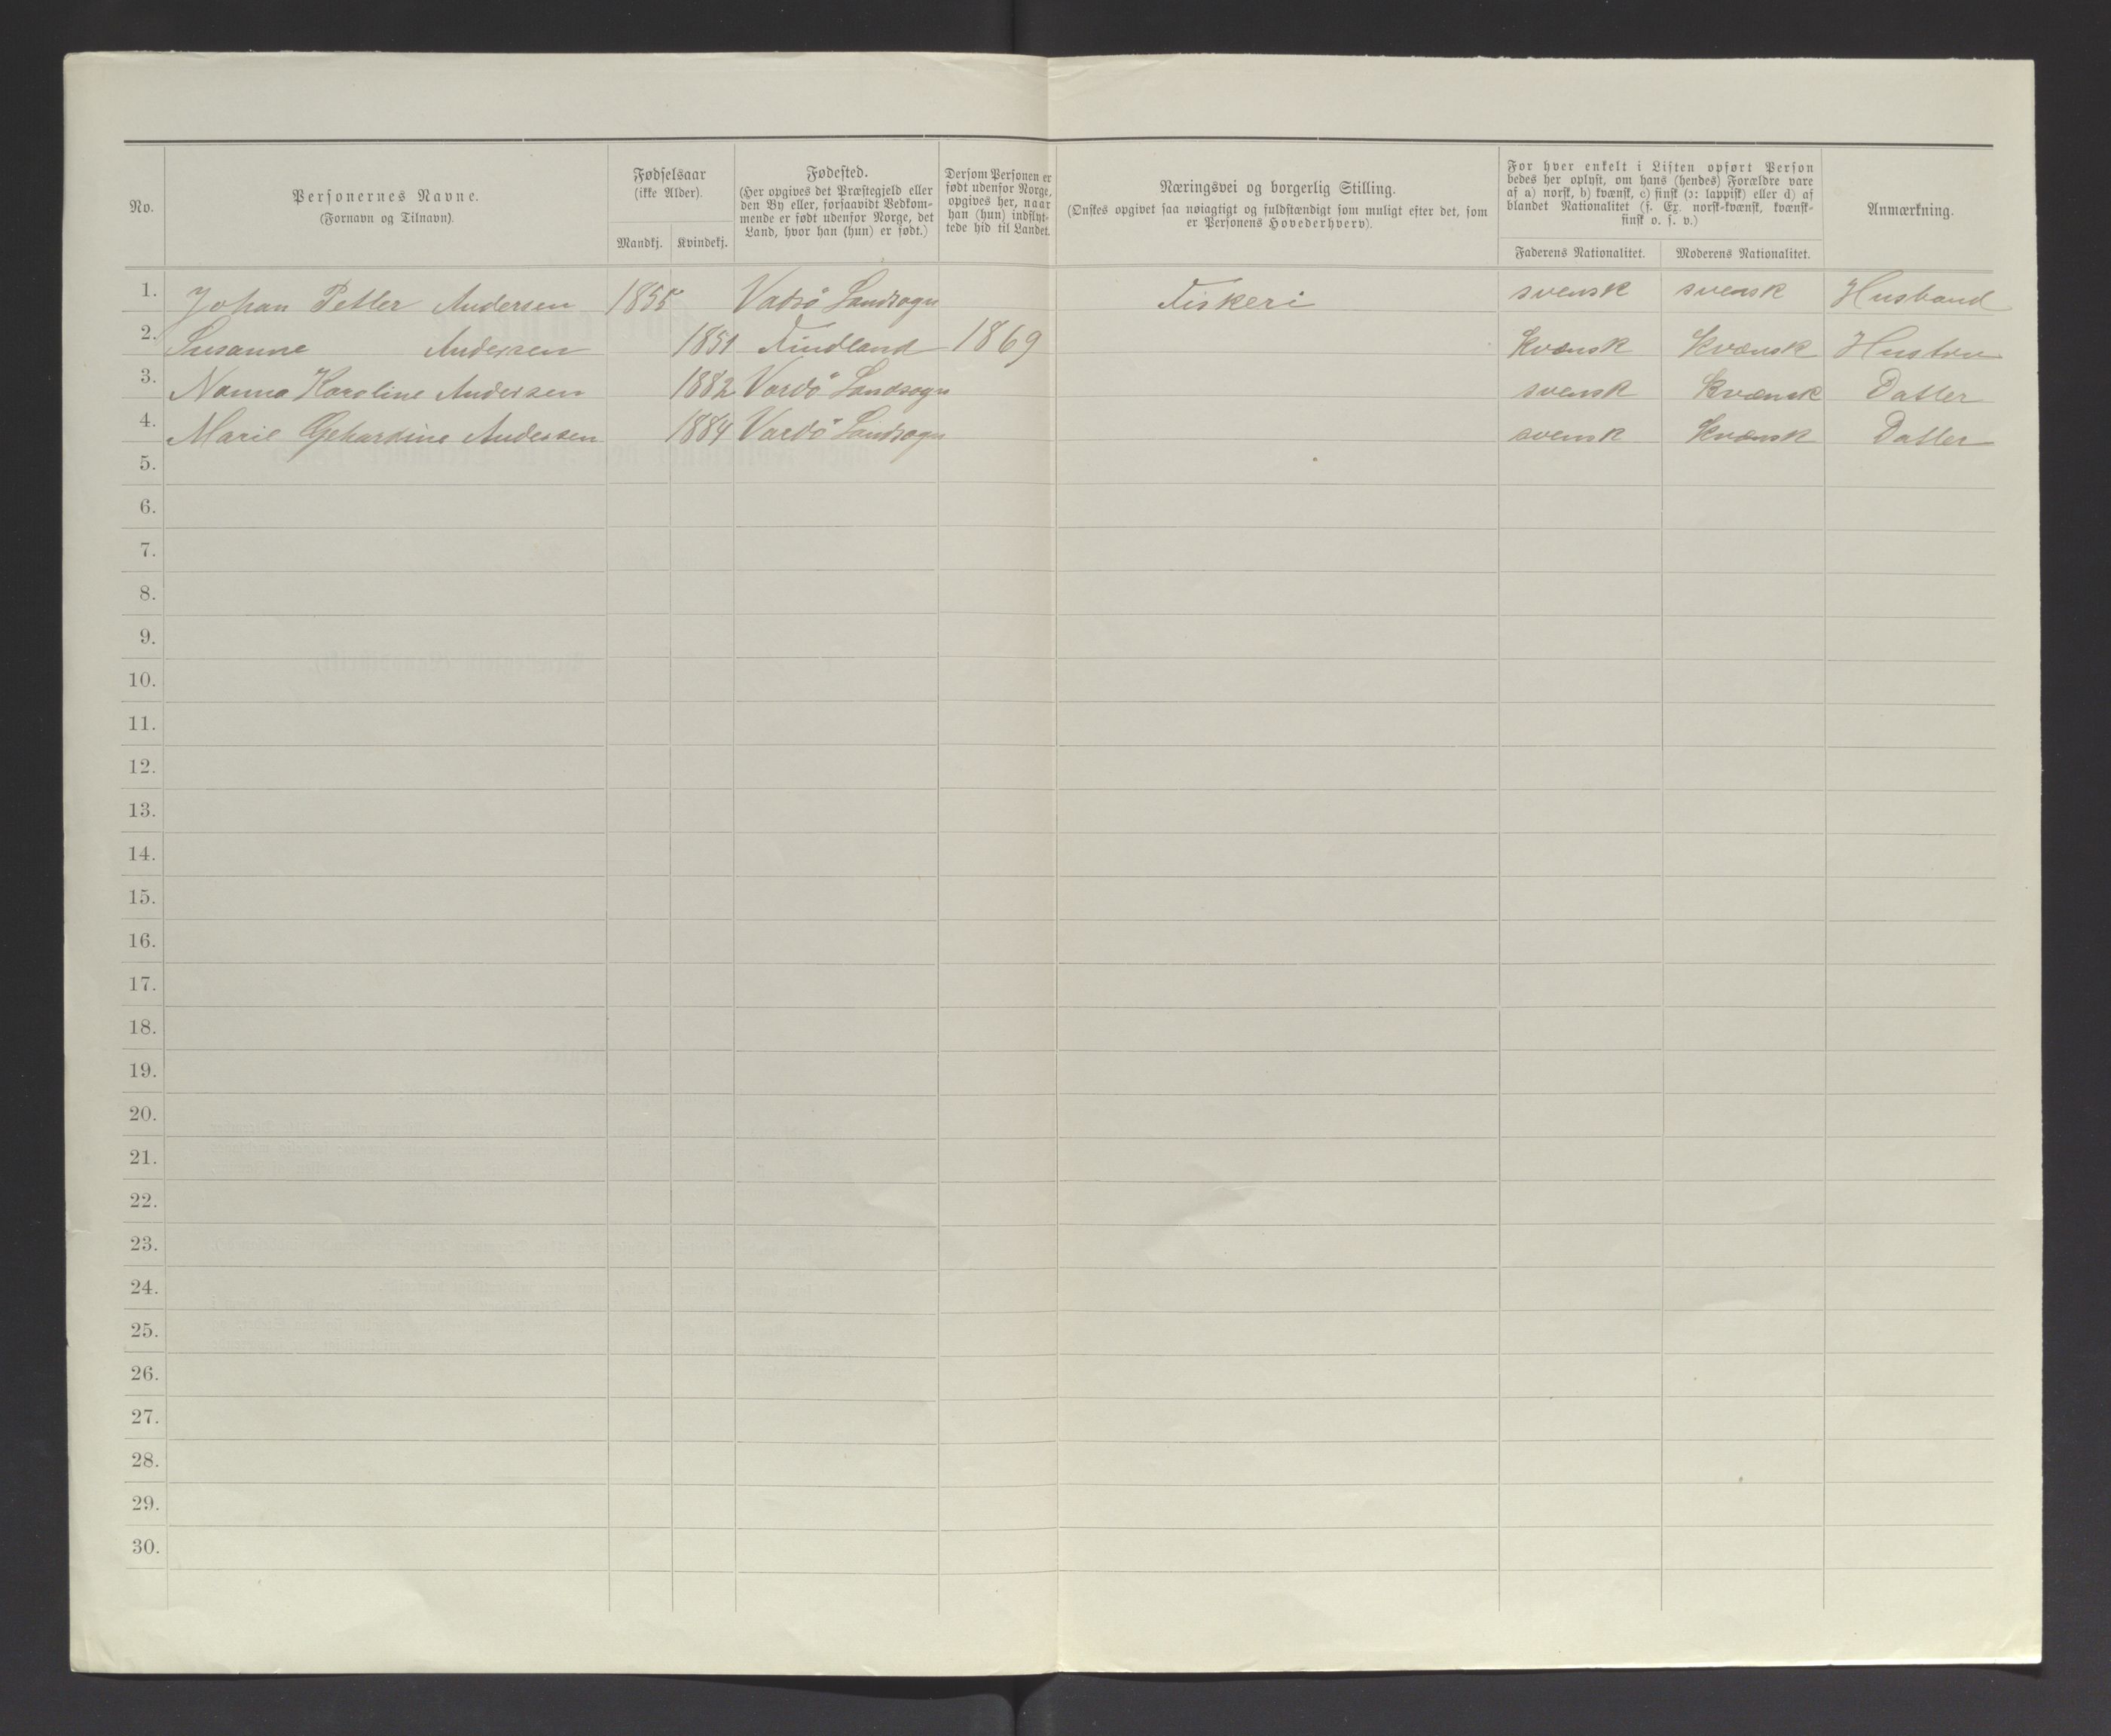 No.
Personernes Navne.
(Fornavn og Tilnavn).
Fødselsaar
(ikke Alder).
Mandkj. Kvindekj.
Fødested.
(Her opgives det Præstegjeld eller
den By eller, forsaavidt Vedkom-
mende er født udenfor Norge, det
Land, hvor han (hun) er født.)
Dersom Personen er
født udenfor Norge,
opgives her, naar
han (hun) indflyt-
tede hid til Landet.
Næringsvei og borgerlig Stilling.
(Ønskes opgivet saa nøiagtigt og fuldstændigt som muligt efter det, som
er Personens Hovederhverv).
For hver enkelt i Listen opført Person
bedes her oplyst, om hans (hendes) Forældre vare
af a) norsk, b) kvænsk, c) finsk (ɔ: lappisk) eller d) af
blandet Nationalitet (f. Ex. norsk-kvænsk, kvænsk-
finsk o. s. v.)
Faderens Nationalitet. Moderens Nationalitet.
Anmærkning.
1. Johan Petter Andersen 1855 Vadsö Landsogn Fiskeri svensk svensk Husband
2. Susanne Andersen 1851 Findland 1869 Kvænsk Kvænsk Hustru
3. Nanna Karoline Andersen 1882 Vardö Landsogn svensk Kvænsk Datter
4. Marie Gehardine Andersen 1884 Vardö Landsogn svensk Kvænsk Datter
5.
6.
7.
8.
9.
10.
11.
12.
13.
14.
15.
16.
17.
18.
19.
20.
21.
22.
23.
24.
25.
26.
27.
28.
29.
30.